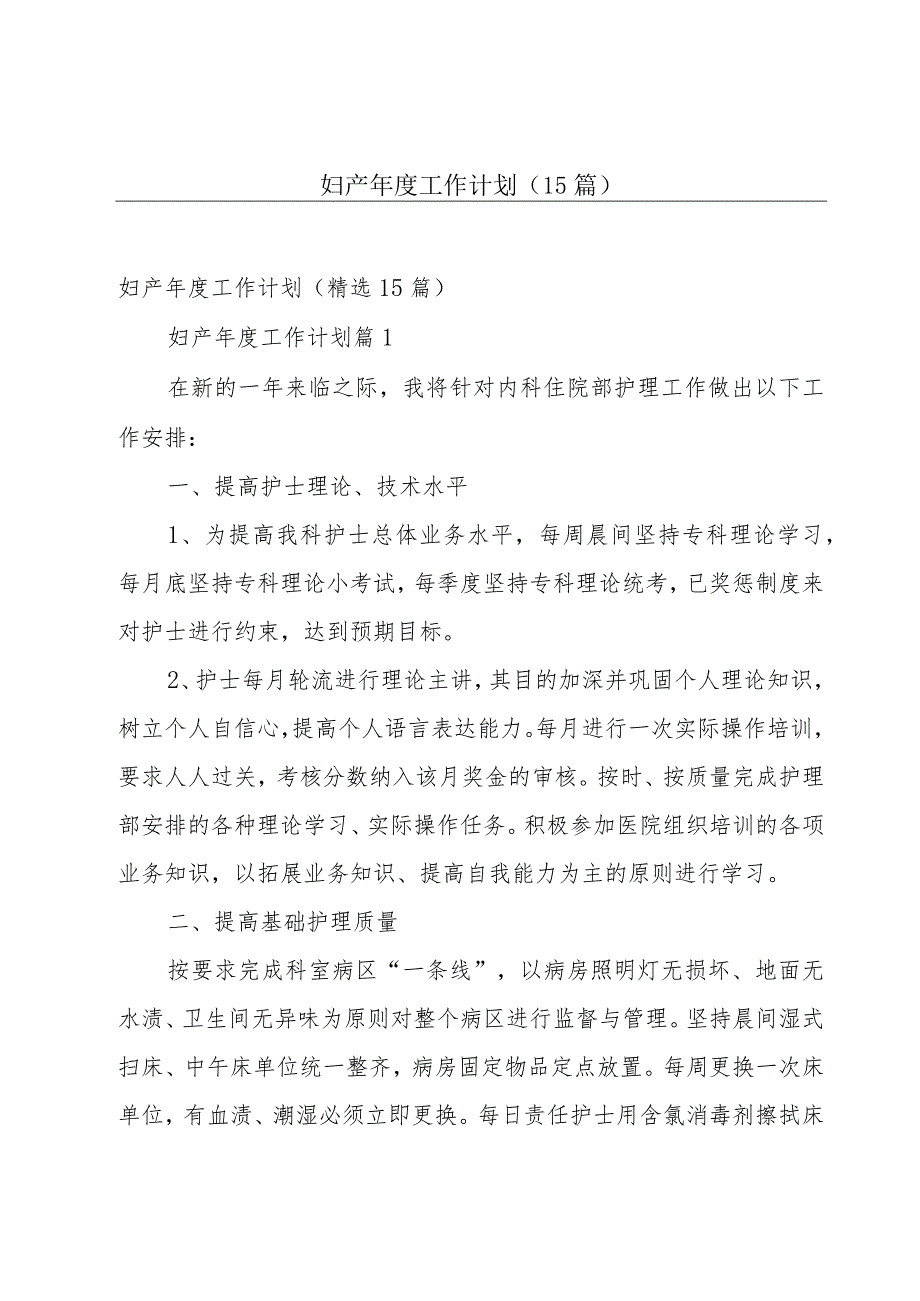 妇产年度工作计划（15 篇）
妇产年度工作计划（精选 15 篇）
妇产年度工作计划篇 1
在新的一年来临之际，我将针对内科住院部护理工作做出以下工
作安排：
一、提高护士理论、技术水平
1、为提高我科护士总体业务水平，每周晨间坚持专科理论学习，
每月底坚持专科理论小考试，每季度坚持专科理论统考，已奖惩制度来
对护士进行约束，达到预期目标。
2、护士每月轮流进行理论主讲，其目的加深并巩固个人理论知识，
树立个人自信心，提高个人语言表达能力。每月进行一次实际操作培训，
要求人人过关，考核分数纳入该月奖金的审核。按时、按质量完成护理
部安排的各种理论学习、实际操作任务。积极参加医院组织培训的各项
业务知识，以拓展业务知识、提高自我能力为主的原则进行学习。
二、提高基础护理质量
按要求完成科室病区“一条线”，以病房照明灯无损坏、地面无
水渍、卫生间无异味为原则对整个病区进行监督与管理。坚持晨间湿式
扫床、中午床单位统一整齐，病房固定物品定点放置。每周更换一次床
单位，有血渍、潮湿必须立即更换。每日责任护士用含氯消毒剂擦拭床